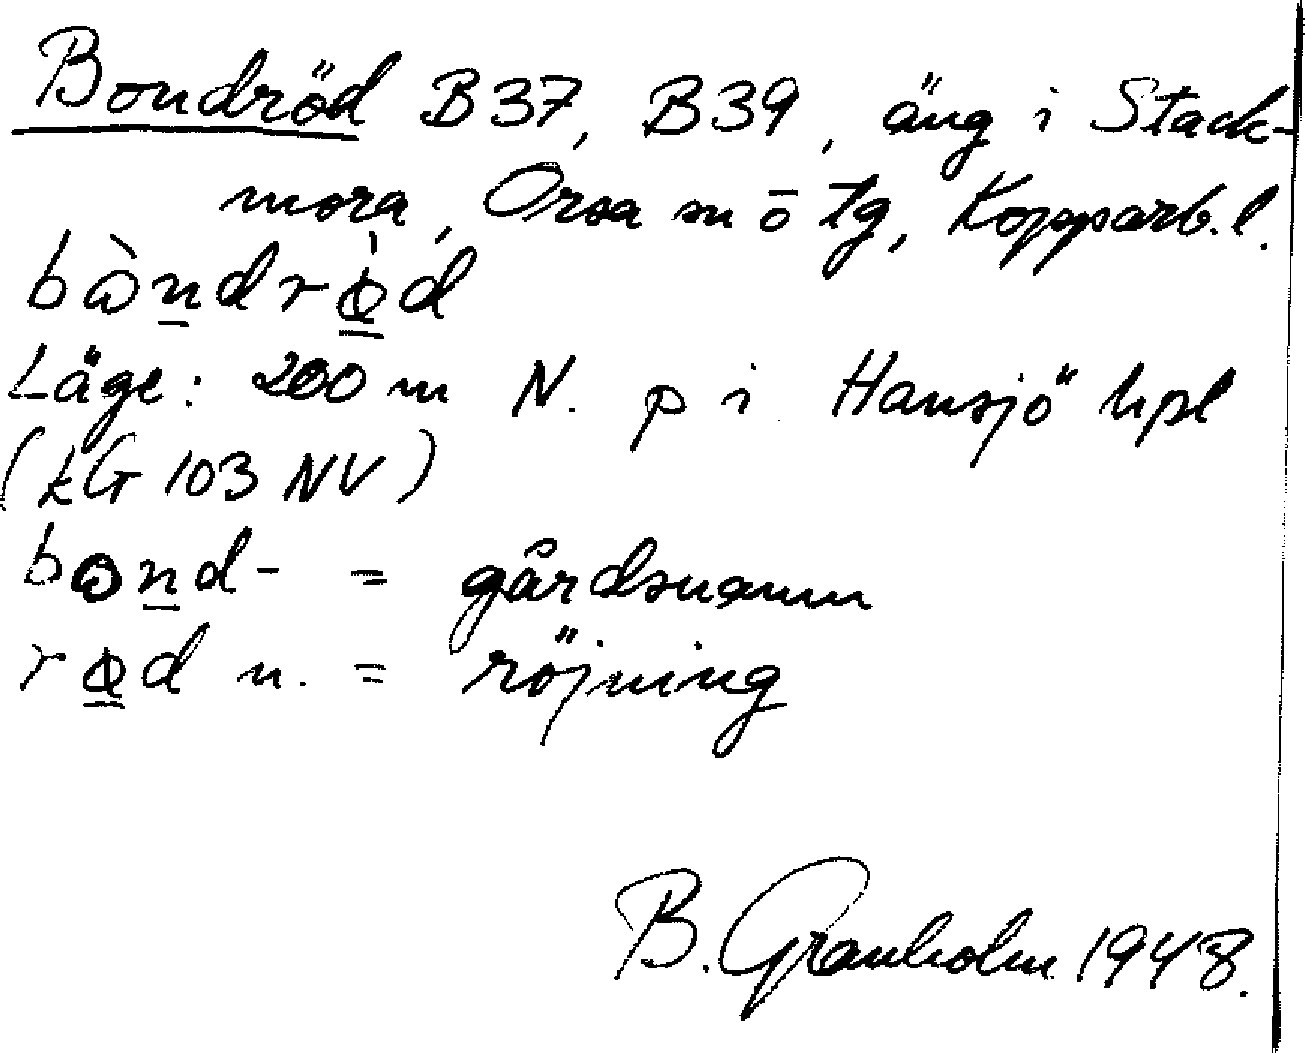 Bondröd B37, B39, äng i Stack-
mora, Orsa sn ö tg, Kopparb. l.
bò̱ndrø̱̀d
Läge: 200 m N. p i Hansjö hpl
(kG 103 NV)
bon̲d- = gårdsnamn
rø̳d n. = röjning
B. Granholm 1948.